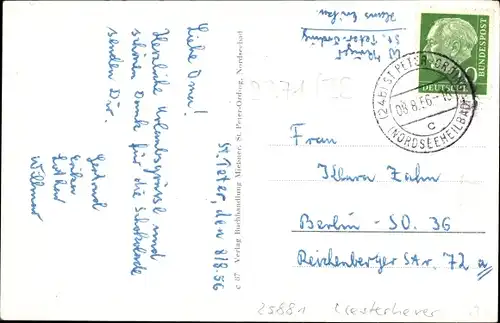 Liebe Oma!
Herzliche Urlaubsgrüsse und
schönen Dank für die Schokolade
senden Dir.
Gertrud
Lothar
Willmar
St. Peter, den 8/8.56
c 07 Verlag Buchhandlung Meissner, St. Peter-Ording, Nordseebad
St. Peter-Ording
DEUTSCHE BUNDESPOST
(24b) ST. PETER-ORDING
08.8.56
c
(NORDSEEHEILBAD)
Frau
Zahn
Berlin - SO. 36
Reichenberger Str. 72 a
25881 Westerhever